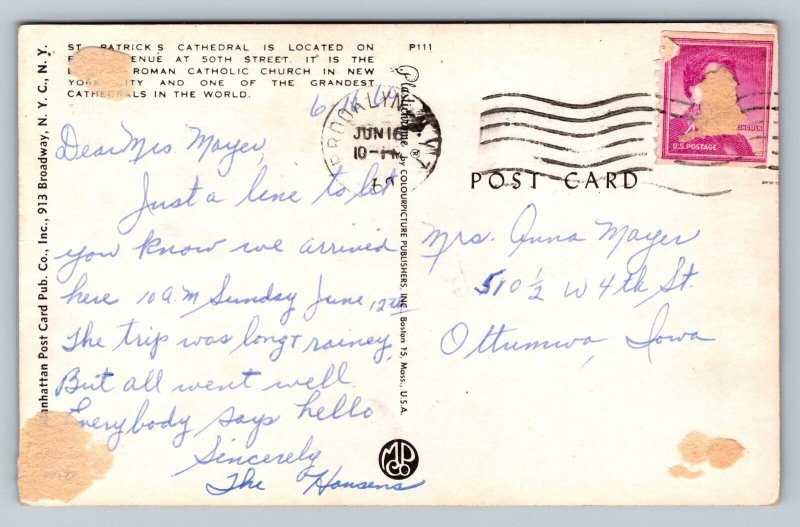 ST. PATRICK'S CATHEDRAL IS LOCATED ON
AVENUE AT 50TH STREET. IT IS THE
ROMAN CATHOLIC CHURCH IN NEW
YORK CITY AND ONE OF THE GRANDEST
CATHEDRALS IN THE WORLD.
P111
Manhattan Post Card Pub. Co., Inc., 913 Broadway, N. Y. C., N. Y.
Plastichrome ® by COLOURPICTURE PUBLISHERS, INC. Boston 15, Mass., U.S.A.
BROOKLYN
JUN 16
10-
LINCOLN
U.S. POSTAGE
POST CARD
Dear Mrs Mayer,
Just a line to let
you know we arrived
here 10 a.m Sunday June 12th
The trip was long + rainey,
But all went well
Everybody says hello
Sincerely
The Hansens
Mrs. Anna Mayer
510½ W 4th St.
Ottumwa, Iowa
MPCo